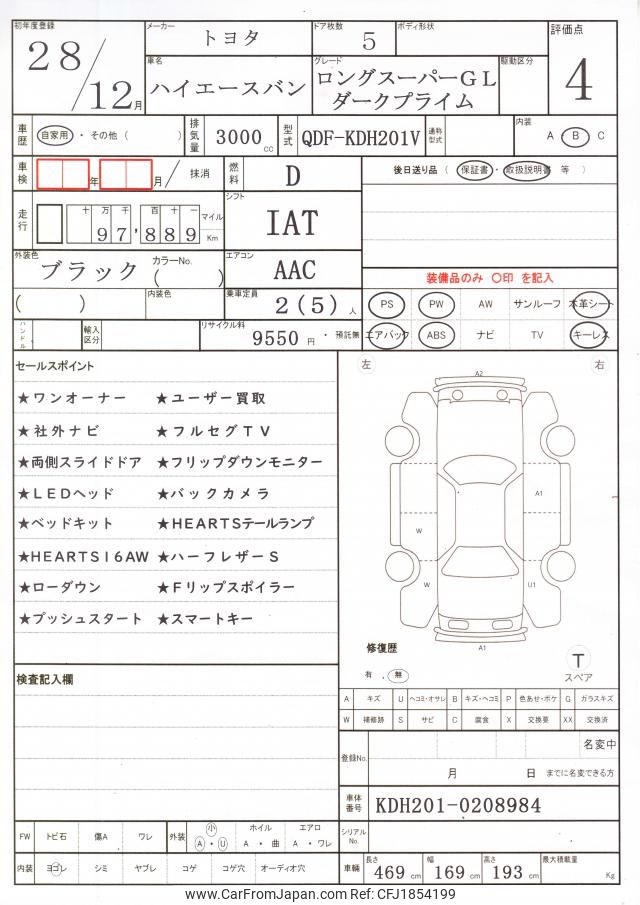 初年度登録 28/12月 メーカー トヨタ ドア枚数 5 ボディ形状 評価点 4
車名 ハイエースバン グレード ロングスーパーGL ダークプライム 駆動区分
車歴 自家用・その他( ) 排気量 3000cc 型式 QDF-KDH201V 通称型式 内装 A・B C
車検 年 月/ 抹消 燃料 D 後日送り品(保証書・取扱説明書 等 )
走行 十万千百十一 97,889 マイル Km シフト IAT
外装色 ブラック カラーNo. ( ) エアコン AAC 装備品のみ ○印 を記入
( ) 内装色 乗車定員 2(5)人 PS PW AW サンルーフ 本革シート
ハンドル 輸入区分 リサイクル料 9550円・預託無 エアバック ABS ナビ TV キーレス
セールスポイント 左 右
★ワンオーナー ★ユーザー買取
★社外ナビ ★フルセグTV
★両側スライドドア ★フリップダウンモニター
★LEDヘッド ★バックカメラ
★ベッドキット ★HEARTSテールランプ
★HEARTS16AW ★ハーフレザーS
★ローダウン ★Fリップスポイラー
★プッシュスタート ★スマートキー
A2
A1
W
W U1
A1
修復歴
有 . 無
T
スペア
検査記入欄
A キズ U ヘコミ・オサレ B キズ・ヘコミ P 色あせ・ボケ G ガラスキズ
W 補修跡 S サビ C 腐食 X 交換要 XX 交換済
登録No. 名変中
月 日 までに名変できる方
車体番号 KDH201-0208984
FW トビ石 傷A ワレ 外装 小 A・U ホイル A・曲 エアロ A・ワレ シリアルNo.
内装 ヨゴレ シミ ヤブレ コゲ コゲ穴 オーディオ穴 車輛 長さ 469cm 幅 169cm 高さ 193cm 最大積載量 Kg
www.CarFromJapan.com Ref: CFJ1854199